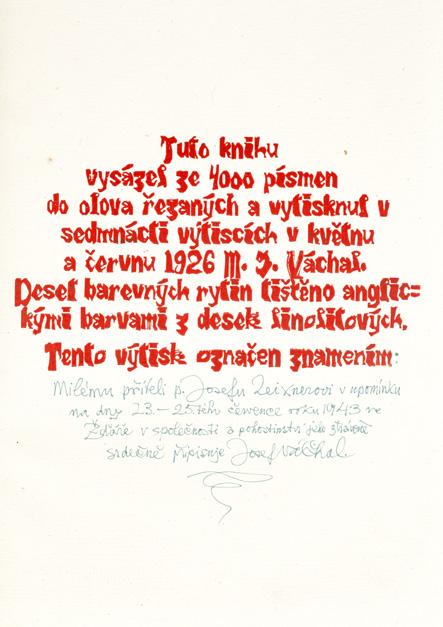 Tuto knihu
vysázel ze 4000 písmen
do olova řezaných a vytisknul v
sedmnácti výtiscích v květnu
a červnu 1926 M. J. Váchal.
Deset barevných rytin tištěno anglic=
kými barvami z desek linolitových.
Tento výtisk označen znamením:
Milému příteli p. Josefu Zeixnerovi v upomínku
na dny 23.–25.tého července roku 1943 ve
Žďáře v společnosti a pohostinství jeho ztrávené
srdečně připisuje Josef Váchal